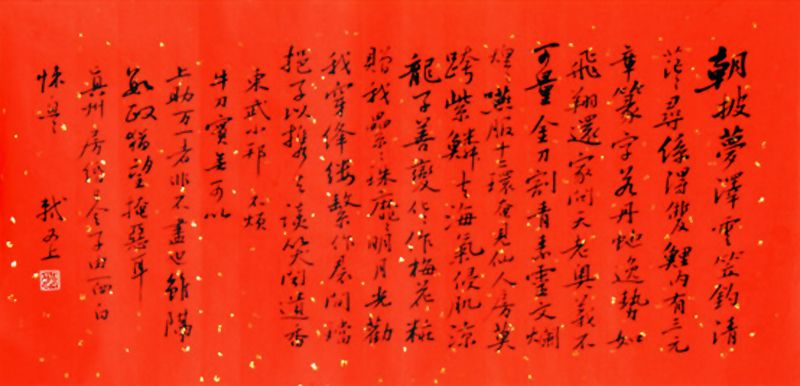 朝披夢澤雲笠釣清
茫〻尋絲得雙鯉內有三元
章篆字若丹蛇逸勢如
飛翔還家問天老奧義不
可量金刀割青素靈文爛
煌〻嚥服十二環奄見仙人房莫
跨紫鱗去海氣侵肌涼
龍子善變化〻作梅花粧
贈我纍〻珠靡〻明月光勸
我穿絳縷繫作裙間璫
挹子以攜去談笑聞遺香
東武小邦不煩
牛刀實無可以
上助万一者非不盡也雖隔
數政猶望掩惡耳
真州房緡已令子由面白
悚息 軾又上